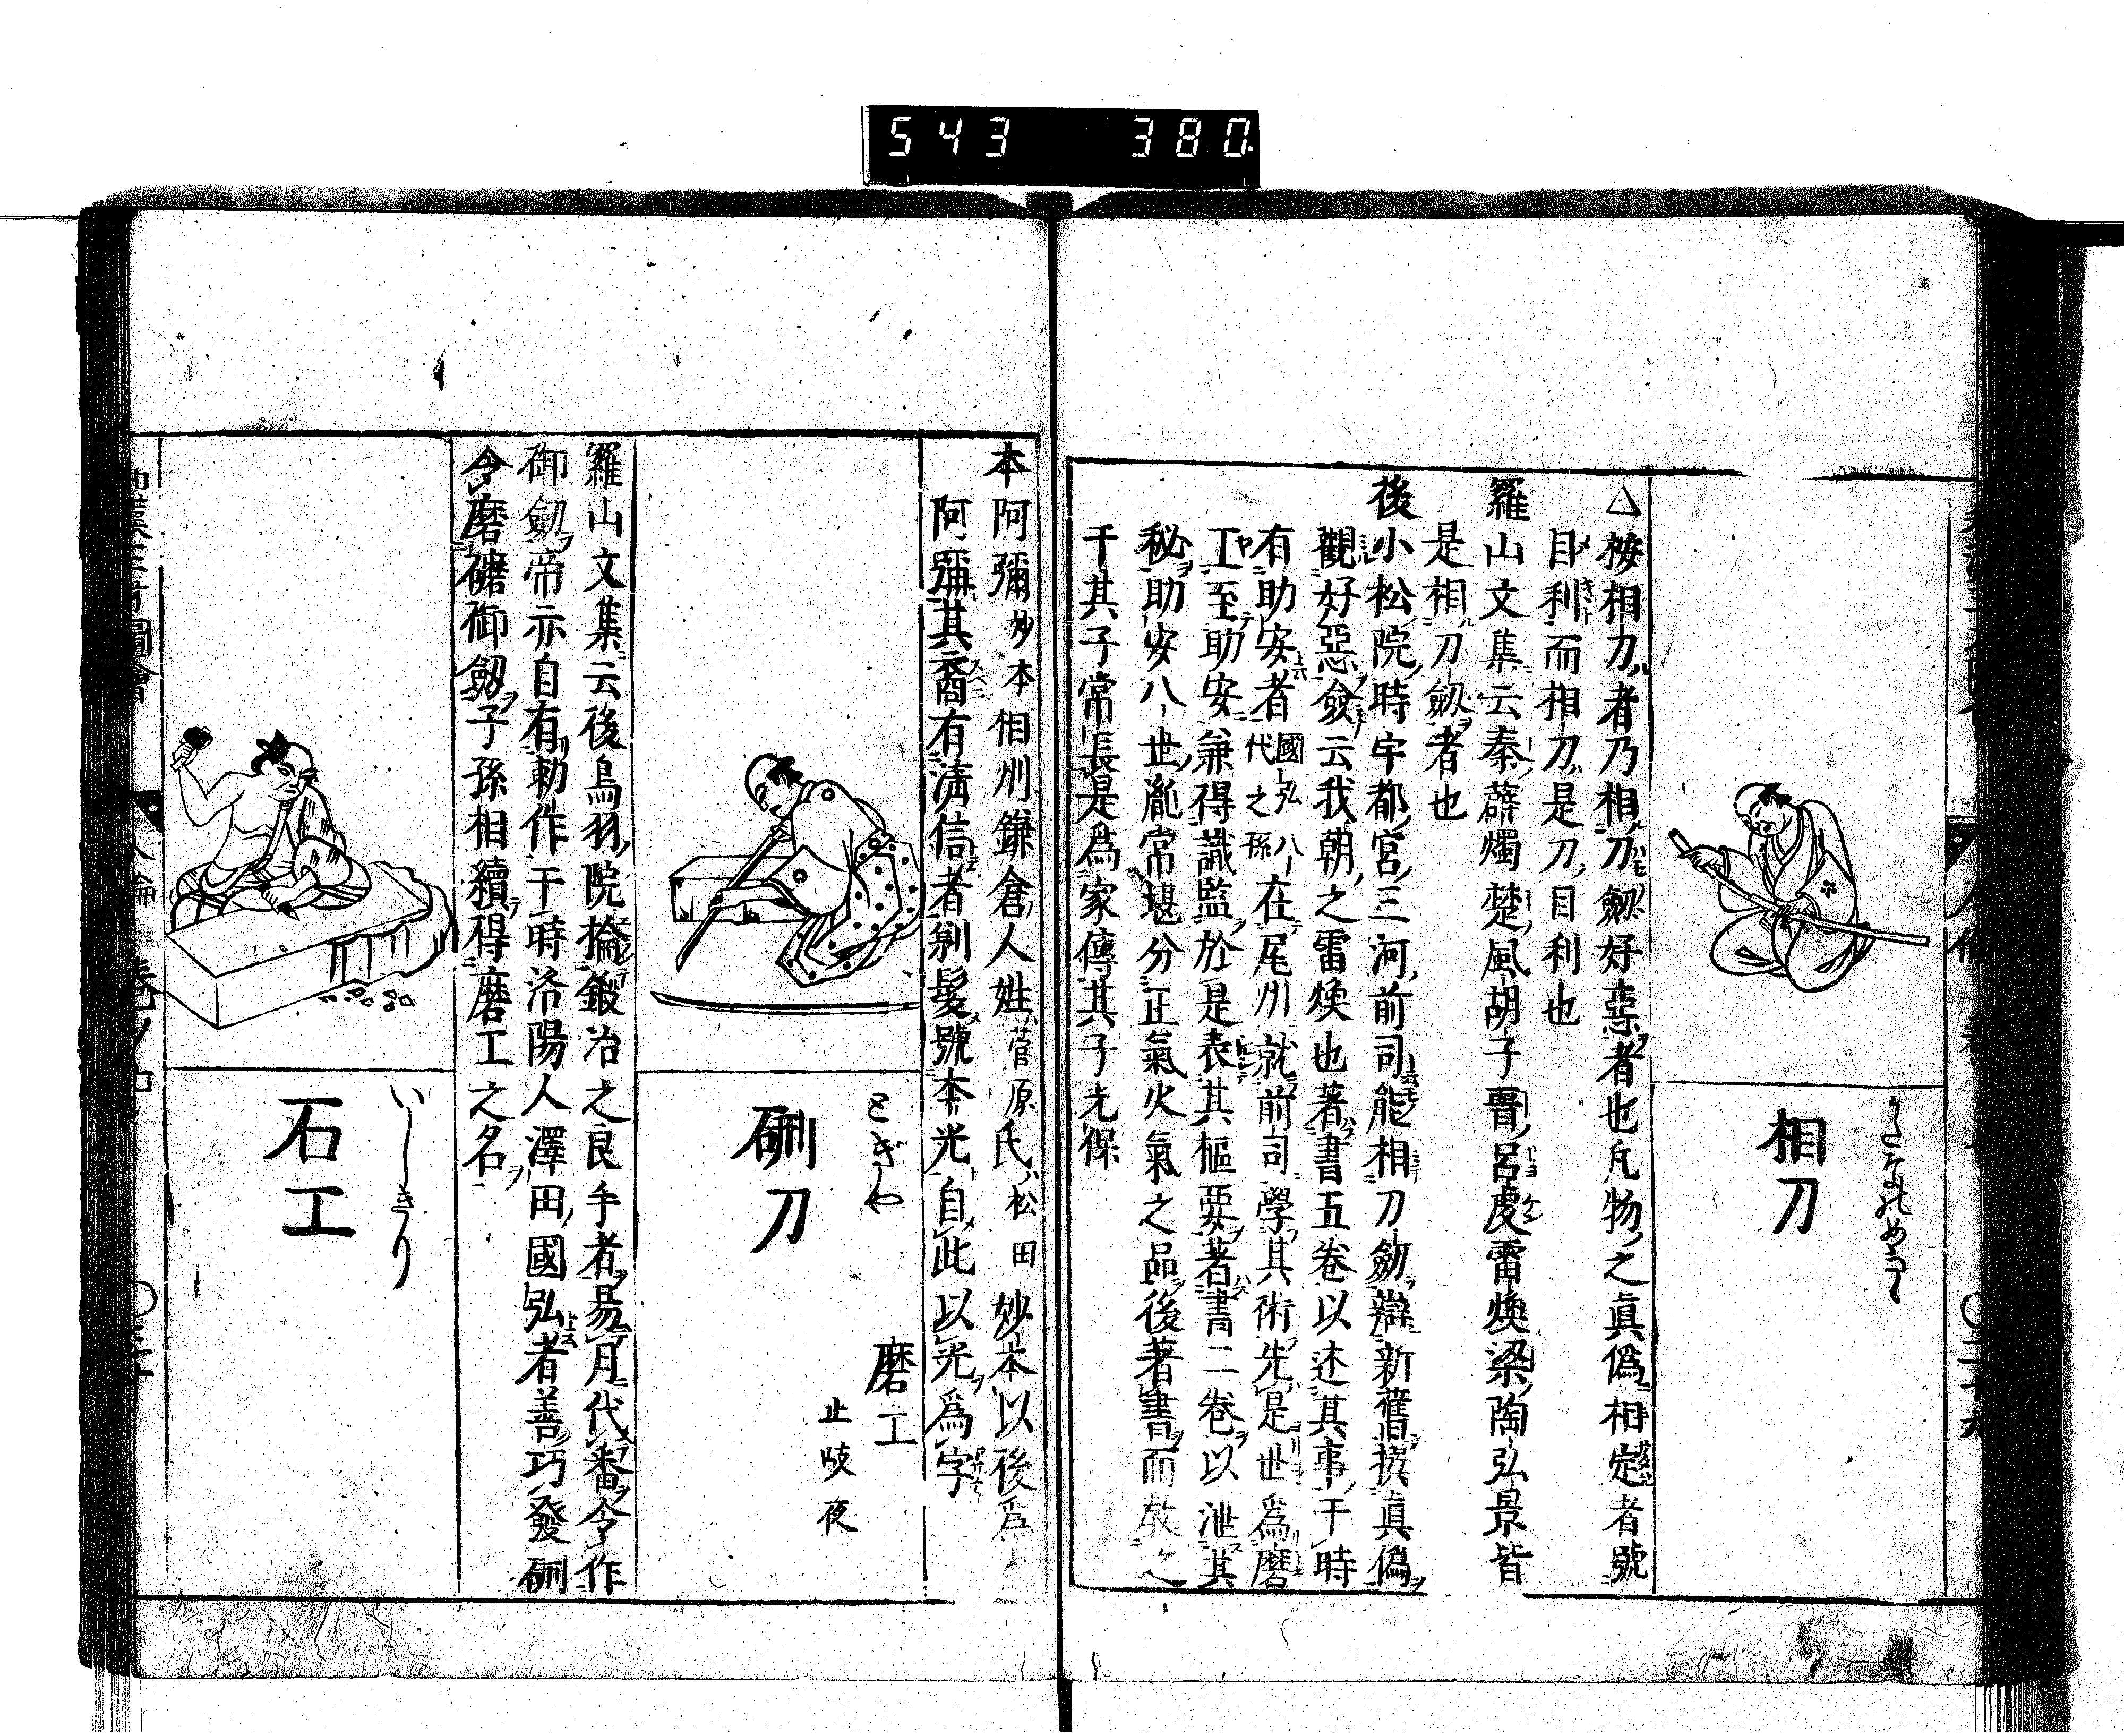 543 380
かたなのめきき
相刀
△按相刀者乃相刀劔好惡者也凡物之眞僞相定者號
目利而相刀是刀目利也
羅山文集云秦薛燭楚風胡子晋呂虔雷煥梁陶弘景皆
是相刀劔者也
後小松院時宇都宮三河前司能相刀劔辯新舊撰眞僞
觀好惡僉云我朝之雷煥也著書五卷以述其事于時
有助安者國弘八代之孫在尾州就前司學其術先是世爲磨
工至助安兼得識監於是表其樞要著書二卷以泄其
秘助安八世瀧常堪分正氣火氣之品後著書而
于其子常長是爲家傳其子光保
本阿彌妙本相州鎌倉人姓菅原氏松田妙本以後爲
阿彌其裔有淸信者剃髮號本光自此以光爲字
とぎや
硎刀
磨工
止岐夜
羅山文集云後鳥羽院掄鍛冶之良手者易月代番令作
御劔帝亦自有勅作于時洛陽人澤田國弘者善巧發硎
令磨礲御劔子孫相續得磨工之名
いしきり
石工